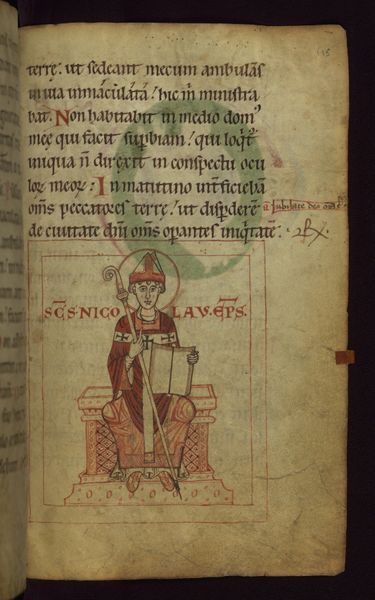 terrę: ut sedeant mecum ambulās
in uia inmaculata/ hic m̄ ministra
bat. Non habitabit in medio dom᾽
meę qui facit supbiam/ qui loq̄t᾽
iniqua n̄ direxit in conspectu ocu
lor̄ meor̄: In matutino int̄ficiebā
om̄s peccatores terrę/ ut disp̄derē
de ciuitate dn̄i om̄s op̄antes iniq̄tatē:
Iubilate deo
SC̄S NICO LAV. EP̄S.